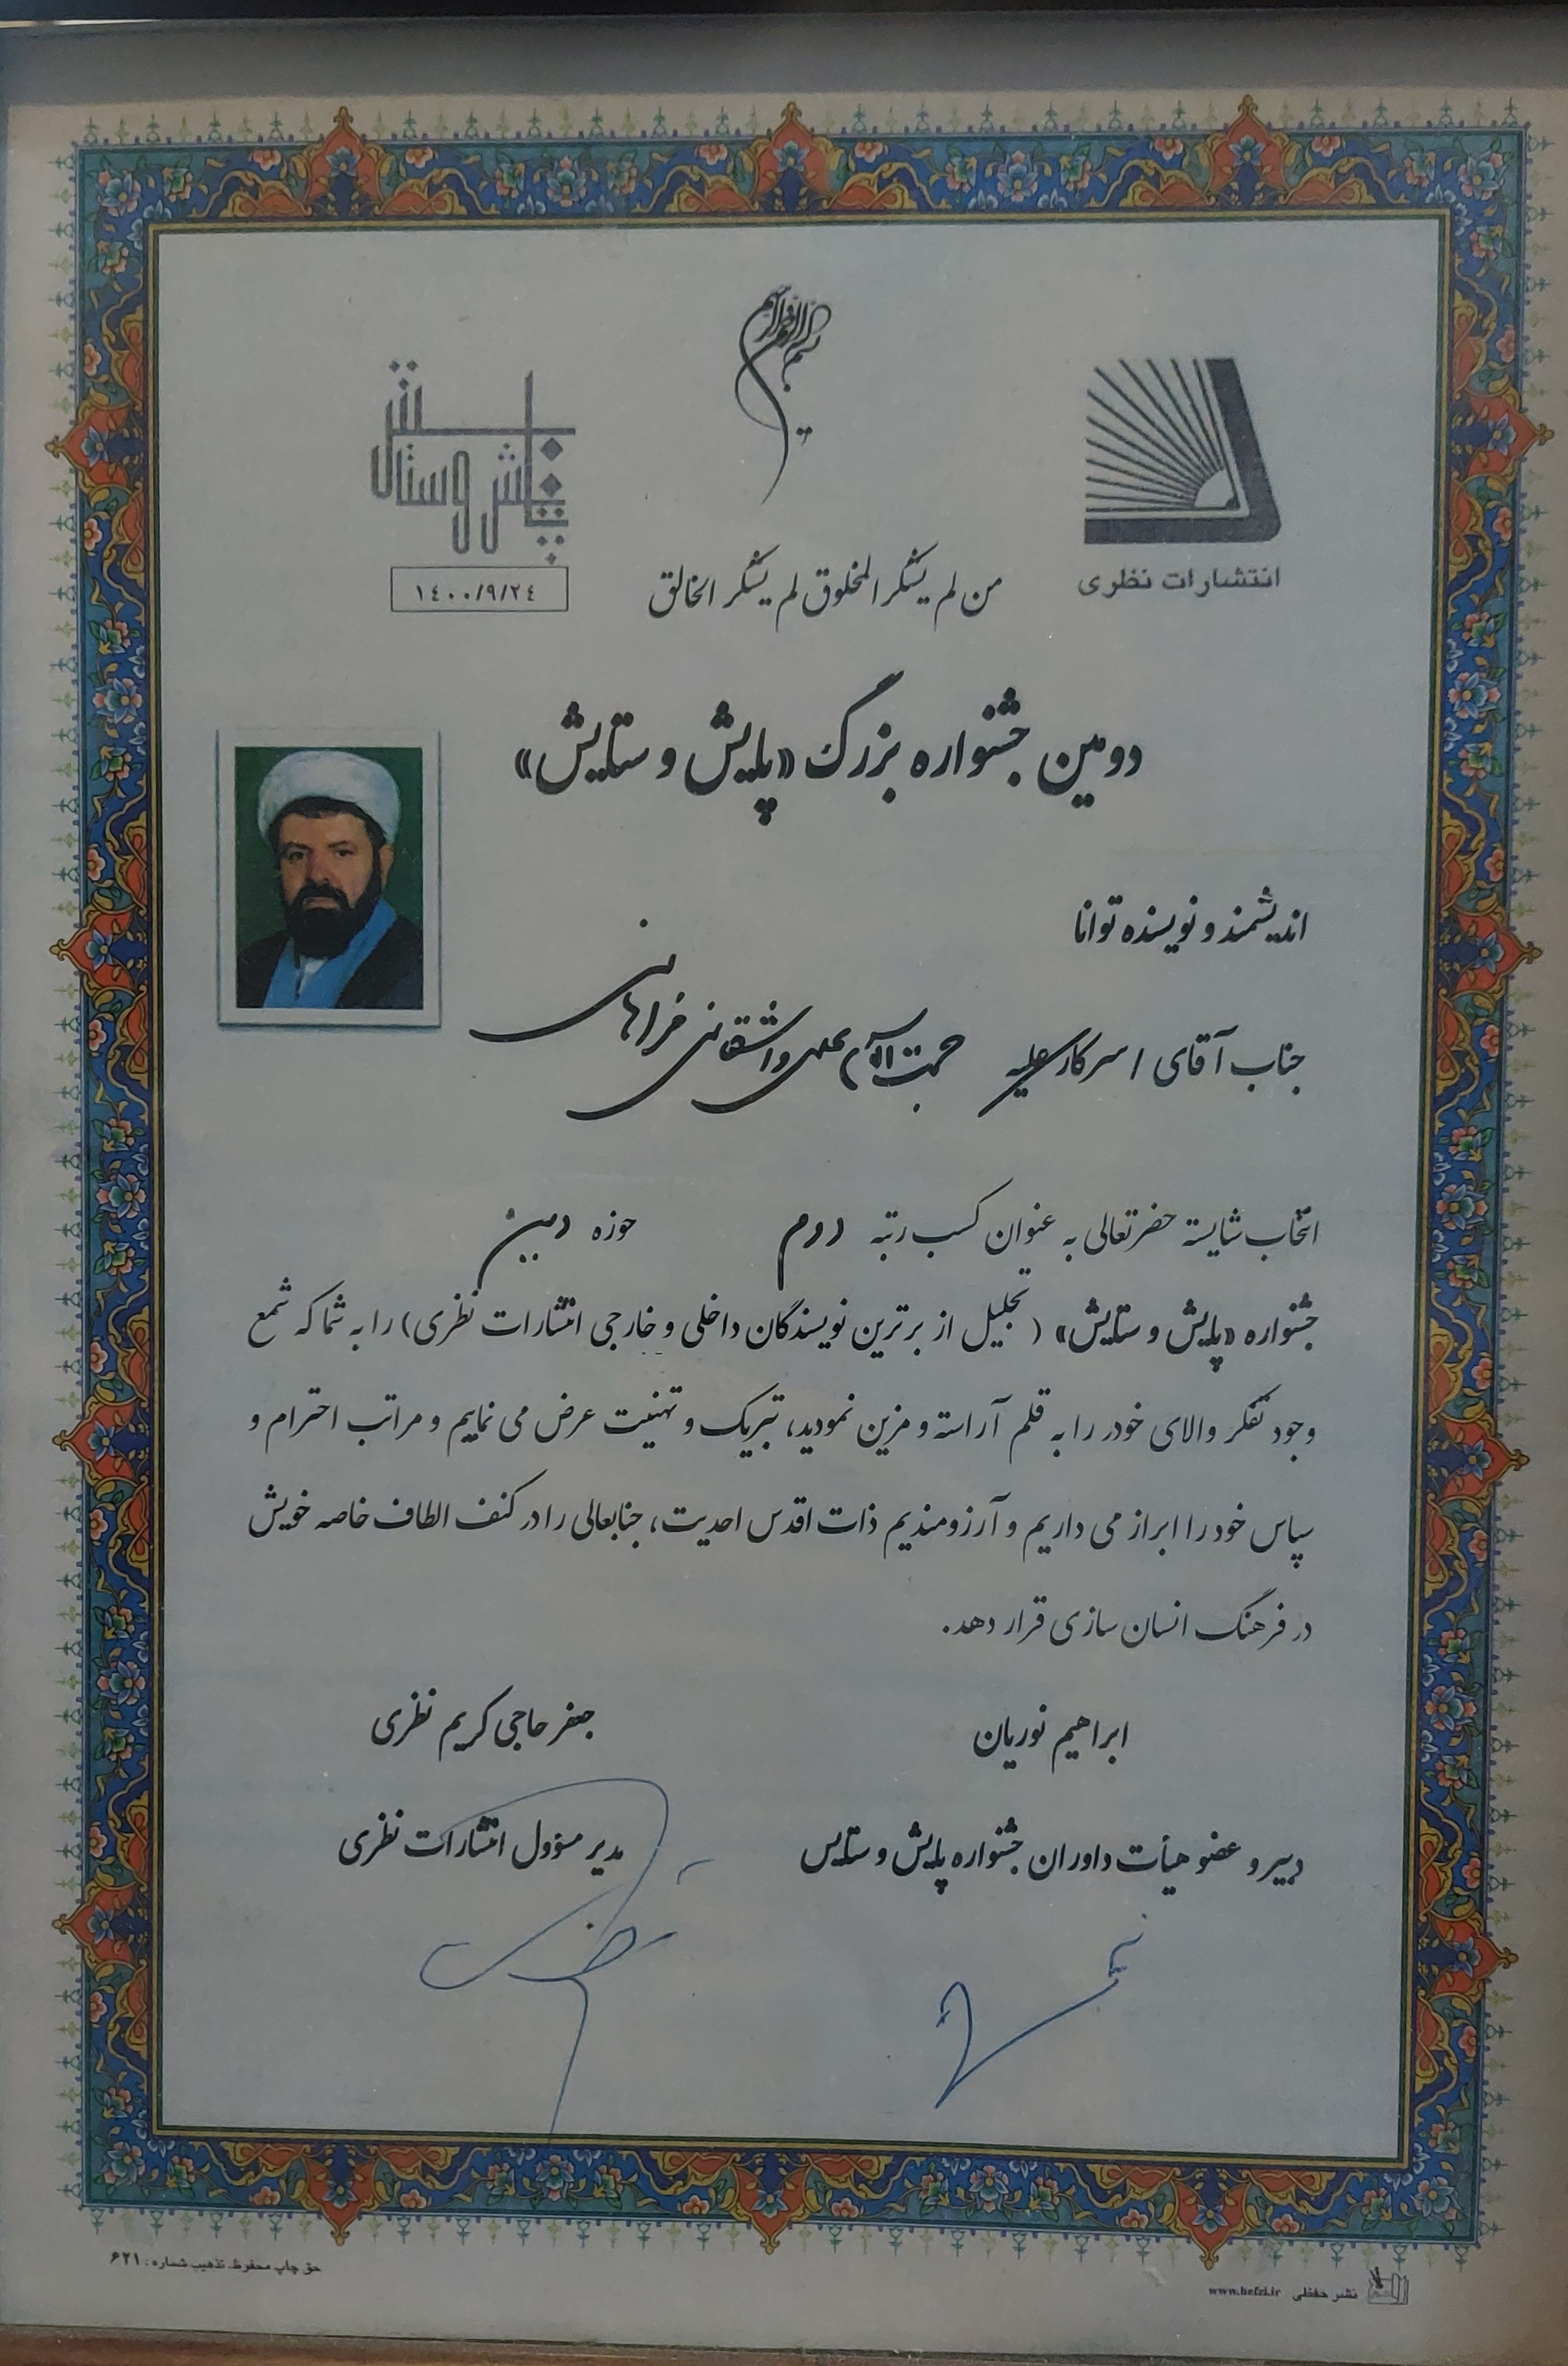 بسم الله الرحمن الرحیم
پایش و ستایش
۱۴۰۰/۹/۲۴
انتشارات نظری
من لم یشکر المخلوق لم یشکر الخالق
دومین جشنواره بزرگ «پایش و ستایش»
اندیشمند و نویسنده توانا
جناب آقای / سرکار علیه حجت الاسلام علی واشقانی فراهانی
انتخاب شایسته حضرتعالی به عنوان کسب رتبه دوم حوزه دین
جشنواره «پایش و ستایش» (تجلیل از برترین نویسندگان داخلی و خارجی انتشارات نظری) را به شما که شمع
وجود تفکر والای خود را به قلم آراسته و مزین نمودید، تبریک و تهنیت عرض می نماییم و مراتب احترام و
سپاس خود را ابراز می داریم و آرزومندیم ذات اقدس احدیت، جنابعالی را در کنف الطاف خاصه خویش
در فرهنگ انسان سازی قرار دهد.
ابراهیم نوریان
دبیر و عضو هیأت داوران جشنواره پایش و ستایس
جعفر حاجی کریم نظری
مدیر مسؤول انتشارات نظری
حق چاپ محفوظ. تذهیب شماره: ۶۲۱
نشر حفظی www.hefzi.ir